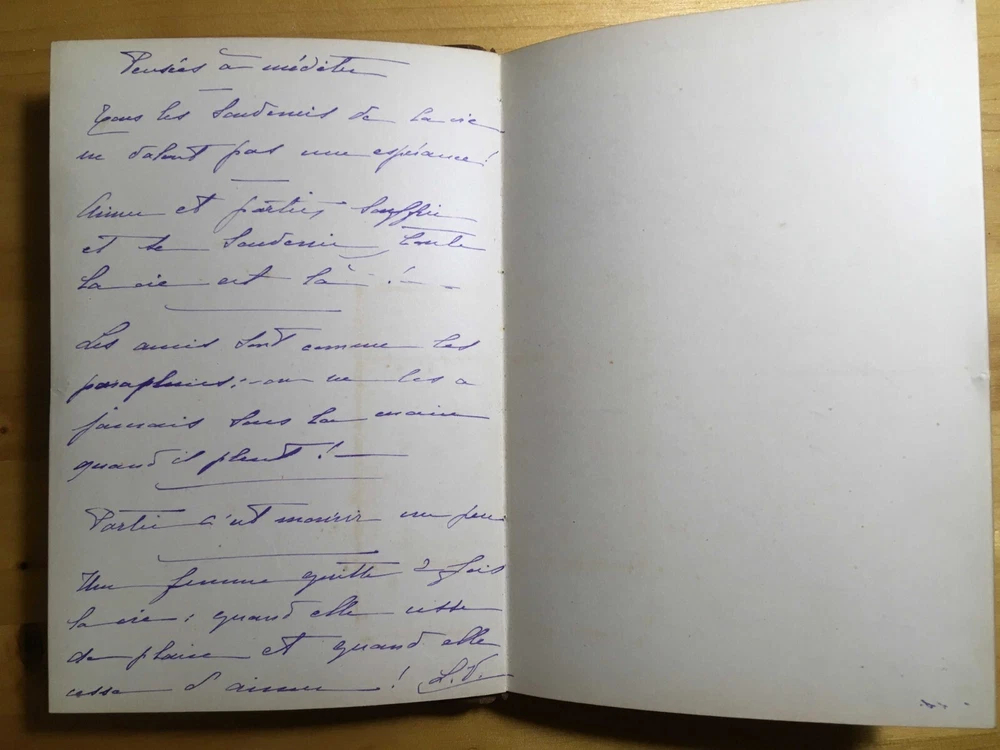 Pensées à méditer
Tous les Souvenirs de la vie
ne valent pas une espérance!
Aimer et partir, Souffrir
et se Souvenir, toute
la vie est là !
Les amis sont comme les
parapluies: on ne les a
jamais sous la main
quand il pleut!
Partir c'est mourir un peu
Une femme quitte 2 fois
la vie: quand elle cesse
de plaire et quand elle
cesse d'aimer! L.V.